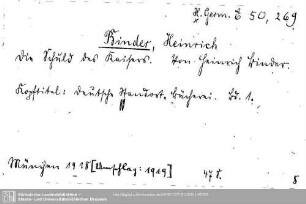 H. Germ. E 50, 269
Binder, Heinrich
Die Schuld des Kaisers. Von Heinrich Binder.
Kopftitel: Deutsche Standort-Bücherei. Bd. 1.
München 1918 [Umschlag: 1919]
47 S.
8
Sächsische Landesbibliothek -
Staats- und Universitätsbibliothek Dresden